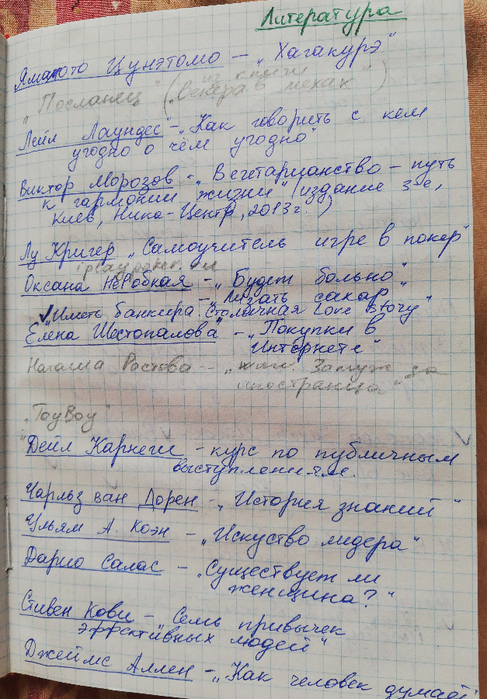 Литература
Ямамото Цунэтомо – „Хагакурэ"
„Посланец" (из книги
„Венера в мехах")
Лейл Лаундес – „Как говорить с кем
угодно о чём угодно"
Виктор Морозов – „Вегетарианство – путь
к гармонии жизни" (издание 3-е,
Киев, Ника-Центр, 2013г.)
Лу Кригер „Самоучитель игре в покер"
iplaypoker.ru
Оксана НеРобкая – „Будет больно"
– „Лизать сахар"
✓„Иметь банкира. Столичная Love Story"
Елена Шестопалова – „Покупки в
Интернете"
Наташа Ростова – „Замуж за
иностранца"
„ToyBoy"
Дейл Карнеги – курс по публичным
выступлениям.
Чарльз ван Дорен – „История знаний"
Уильям А. Коэн – „Искусство лидера"
Дарио Салас – „Существует ли
женщина?"
Стивен Кови – „Семь привычек
эффективных людей"
Джеймс Аллен – „Как человек думает